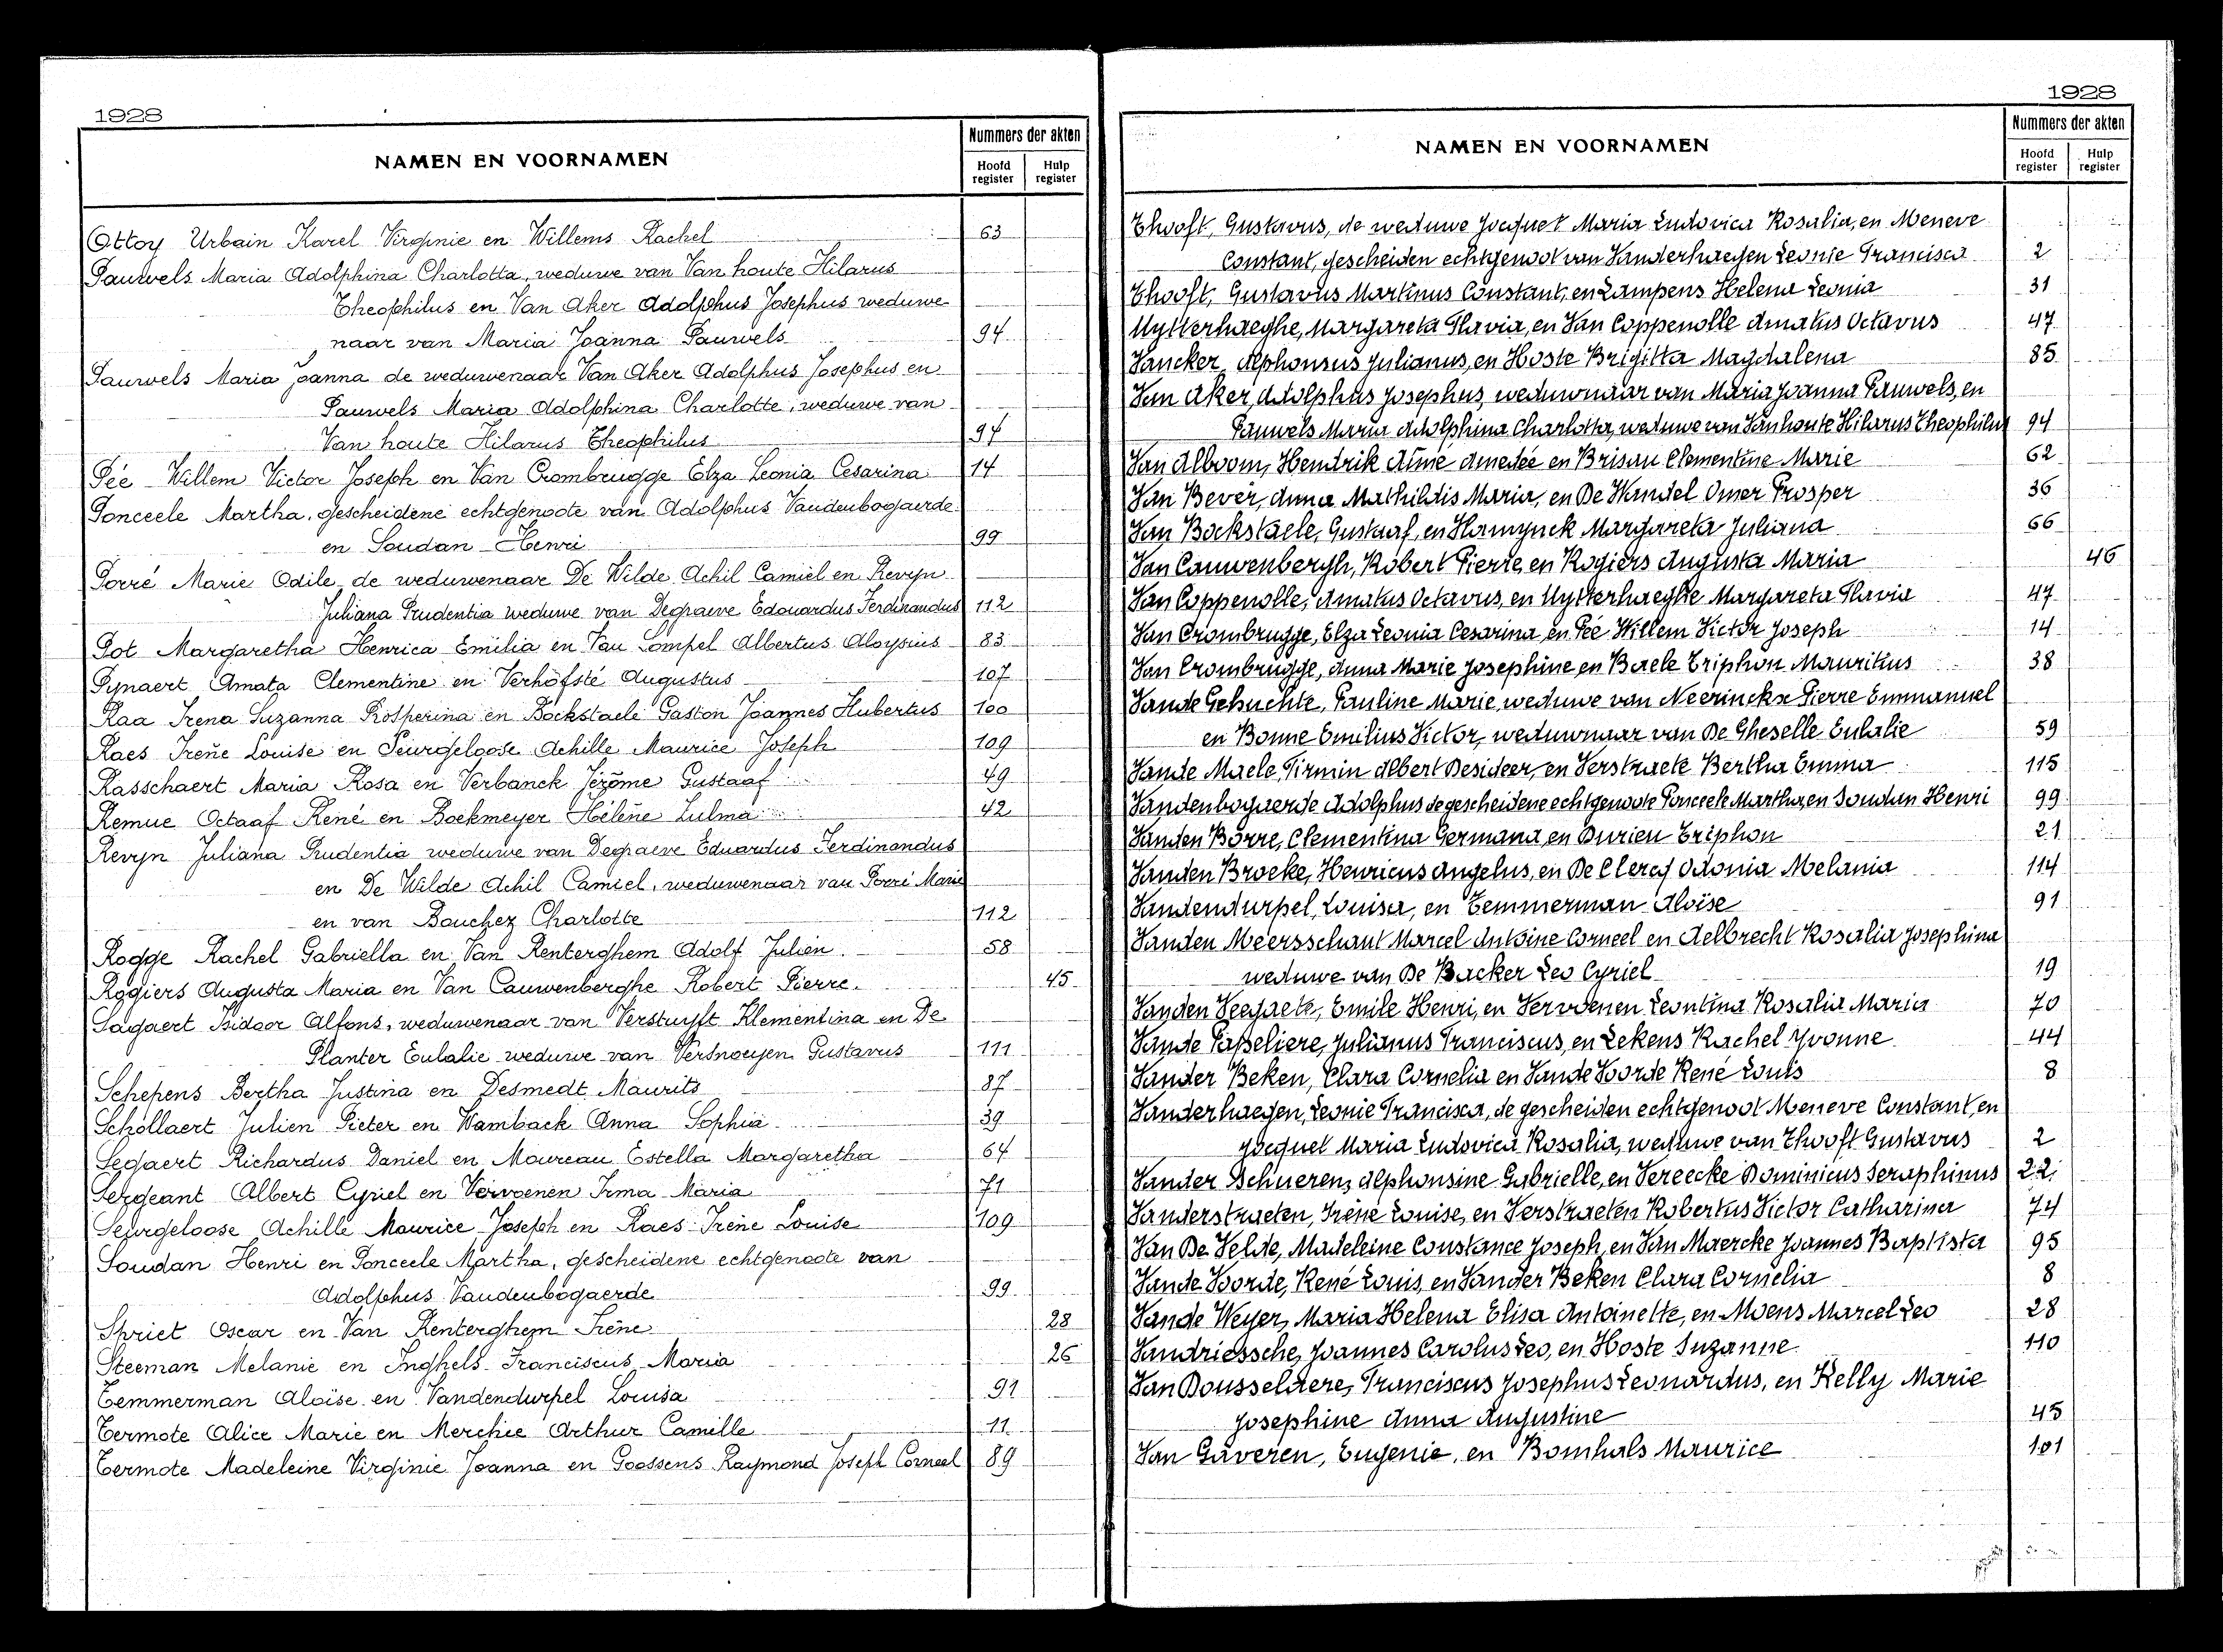 1928
NAMEN EN VOORNAMEN
Nummers der akten
Hoofd register
Hulp register
Ottoy Urbain Karel Virginie en Willems Rachel 63
Pauwels Maria Adolphina Charlotta, weduwe van Van houte Hilarus
Theophilus en Van Aker Adolphus Josephus weduwe-
naar van Maria Joanna Pauwels 94
Pauwels Maria Joanna de weduwenaar Van Aker Adolphus Josephus en
Pauwels Maria Adolphina Charlotte, weduwe van
Van houte Hilarus Theophilus 94
Pée Willem Victor Joseph en Van Crombrugge Elza Leonia Cesarina 14
Ponceele Martha, gescheidene echtgenoote van Adolphus Vandenbogaerde
en Soudan Henri 99
Porré Marie Odile de weduwenaar De Wilde Achil Camiel en Revyn
Juliana Prudentia weduwe van Degraeve Edouardus Ferdinandus 112
Pot Margaretha Henrica Emilia en Van Lompel Albertus Aloysius 83
Pynaert Amata Clementine en Verhofsté Augustus 107
Raa Irena Suzanna Prosperina en Bockstaele Gaston Joannes Hubertus 100
Raes Irene Louise en Seurgeloose Achille Maurice Joseph 109
Rasschaert Maria Rosa en Verbanck Jérôme Gustaaf 49
Remue Octaaf René en Boekmeyer Hélène Zulma 42
Revyn Juliana Prudentia weduwe van Degraeve Eduardus Ferdinandus
en De Wilde Achil Camiel, weduwenaar van Porré Marie
en van Bouchez Charlotte 112
Rogge Rachel Gabriella en Van Renterghem Adolf Julien 58
Rogiers Augusta Maria en Van Cauwenberghe Robert Pierre. 45
Sagaert Isidoor Alfons, weduwenaar van Verstuyft Klementina en De
Planter Eulalie weduwe van Versnoeyen Gustavus 111
Schepens Bertha Justina en Desmedt Maurits 87
Schollaert Julien Pieter en Wamback Anna Sophia 39
Segaert Richardus Daniel en Moureau Estella Margaretha 64
Sergeant Albert Cyriel en Vervoenen Irma Maria 71
Seurgeloose Achille Maurice Joseph en Raes Irene Louise 109
Soudan Henri en Ponceele Martha, gescheidene echtgenoote van
Adolphus Vandenbogaerde 99
Spriet Oscar en Van Renterghem Irène 28
Steeman Melanie en Inghels Franciscus Maria 26
Temmerman Aloïse en Vandendurpel Louisa 91
Termote Alice Marie en Merchie Arthur Camille 11
Termote Madeleine Virginie Joanna en Goossens Raymond Joseph Corneel 89
1928
NAMEN EN VOORNAMEN
Nummers der akten
Hoofd register
Hulp register
Thooft, Gustavus, de weduwe Jocquet Maria Ludovica Rosalia, en Meneve
Constant, gescheiden echtgenoot van Vanderhaegen Leonie Francisca 2
Thooft, Gustavus Martinus Constant, en Lampens Helena Leonia 31
Uytterhaeghe, Margareta Flavia, en Van Coppenolle Amatus Octavus 47
Vancker, Alphonsus Julianus, en Hoste Brigitta Magdalena 85
Van Aker, Adolphus Josephus, weduwnaar van Maria Joanna Pauwels, en
Pauwels Maria Adolphina Charlotta, weduwe van Vanhoute Hilarus Theophilus 94
Van Alboom, Hendrik Aimé Amedée en Brisau Clementine Marie 62
Van Bever, Anna Mathildis Maria, en De Wandel Omer Prosper 36
Van Bockstaele, Gustaaf, en Hamynck Margareta Juliana 66
Van Cauwenbergh, Robert Pierre, en Rogiers Augusta Maria 46
Van Coppenolle, Amatus Octavus, en Uytterhaeghe Margareta Flavia 47
Van Crombrugge, Elza Leonia Cesarina, en Pée Willem Victor Joseph 14
Van Crombrugge, Anna Marie Josephine en Baele Triphon Mauritius 38
Vande Gehuchte, Pauline Marie, weduwe van Neerinckx Pierre Emmanuel
en Bonne Emilius Victor, weduwnaar van De Gheselle Eulalie 59
Vande Maele, Firmin Albert Desideer, en Verstraete Bertha Emma 115
Vandenbogaerde Adolphus de gescheidene echtgenoote Ponceele Martha, en Soudan Henri 99
Vanden Borre, Clementina Germana, en Durieu Triphon 21
Vanden Broeke, Henricus Angelus, en De Clercq Odonia Melania 114
Vandendurpel, Louisa, en Temmerman Aloïse 91
Vanden Meersschaut Marcel Antoine Corneel en Aelbrecht Rosalia Josephina
weduwe van De Backer Leo Cyriel 19
Vanden Veegaete, Emile Henri, en Vervoenen Leontina Rosalia Maria 70
Vande Papeliere, Julianus Franciscus, en Lekens Rachel Yvonne 44
Vander Beken, Clara Cornelia en Vande Voorde René Louis 8
Vanderhaegen, Leonie Francisca, de gescheiden echtgenoot Meneve Constant, en
Jocquet Maria Ludovica Rosalia, weduwe van Thooft Gustavus 2
Vander Schueren, Alphonsine Gabrielle, en Vereecke Dominicus Seraphinus 22
Vanderstraeten, Irène Louise, en Verstraeten Robertus Victor Catharina 74
Van De Velde, Madeleine Constance Joseph, en Van Maercke Joannes Baptista 95
Vande Voorde, René Louis, en Vander Beken Clara Cornelia 8
Vande Weyer, Maria Helena Elisa Antoinette, en Moens Marcel Leo 28
Vandriessche, Joannes Carolus Leo, en Hoste Suzanne 110
Van Dousselaere, Franciscus Josephus Leonardus, en Kelly Marie
Josephine Anna Augustine 45
Van Gaveren, Eugenie, en Bomhals Maurice 101